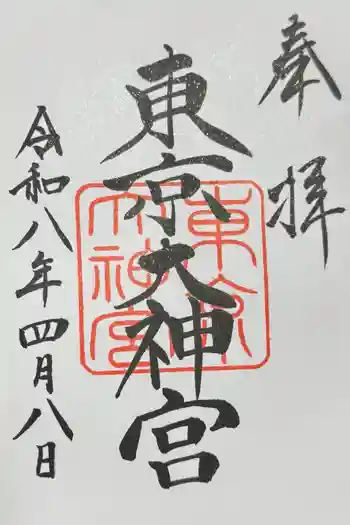 奉拝
東京大神宮
東京大神宮
令和八年四月八日